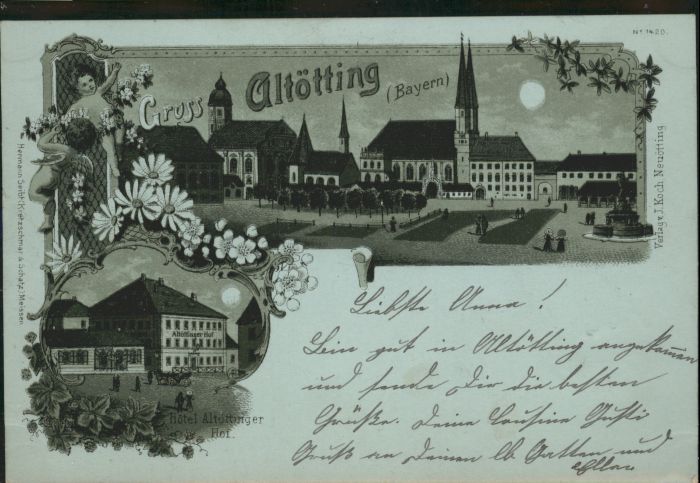 Nº 1420.
Gruss
Altötting
(Bayern)
Verlag v. J. Koch Neuötting
Hermann Seibt (Kretzschmar & Schatz) Meissen
Altöttinger Hof
Hôtel Altöttinger
Hof.
Liebste Anna!
Bin gut in Altötting angekommen
und sende Dir die besten
Grüße. Deine Cousine Gusti
Gruß an Deinen lb. Gatten und